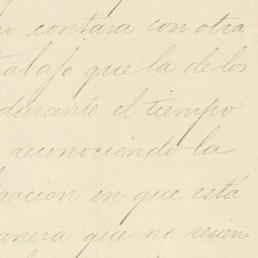 contara con otra
trabajo que la de los
durante el tiempo
reconociendo la
nacion en que está
manera que no resien-